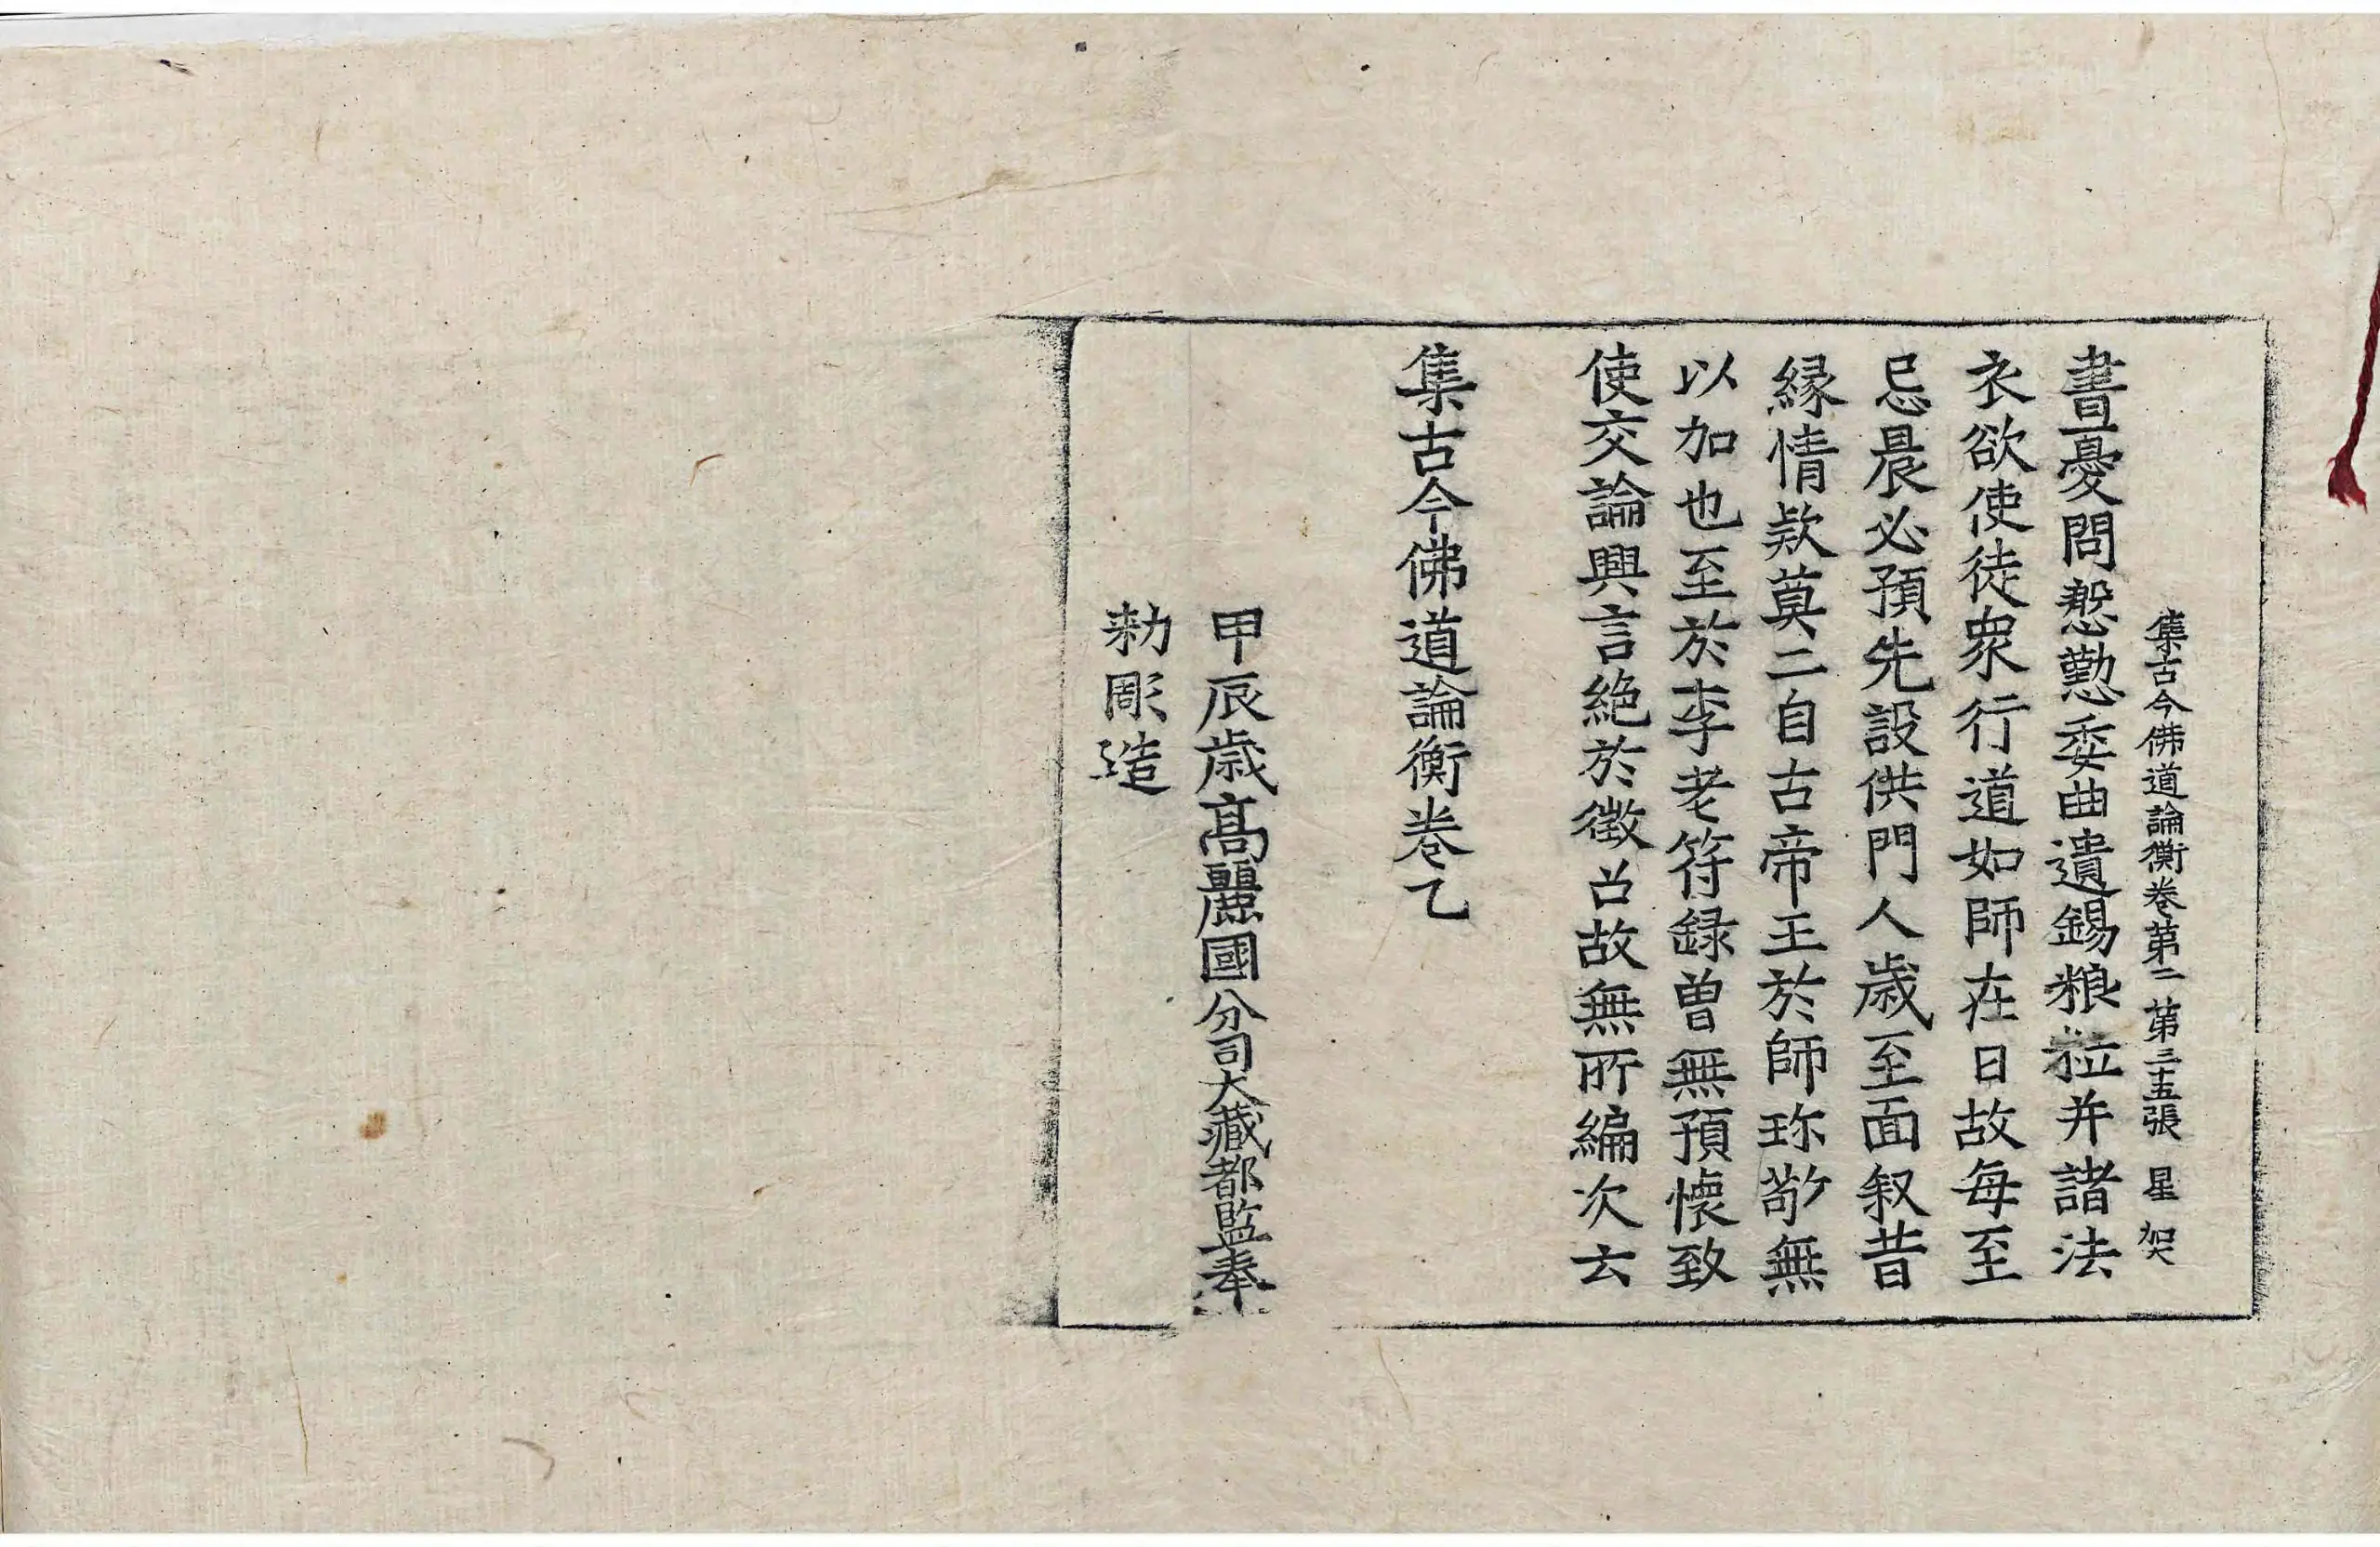 集古今佛道論衡卷第二 第三十五張 星 架
書憂問慇懃委曲遺錫粮粒并諸法
衣欲使徒衆行道如師在日故每至
忌晨必預先設供門人歲至面叙昔
縁情欵莫二自古帝王於師珎敬無
以加也至於李老符録曽無預懷致
使交論興言絶於徵召故無所編次云
集古今佛道論衡卷乙
甲辰歳高麗國分司大藏都監奉
勑彫造